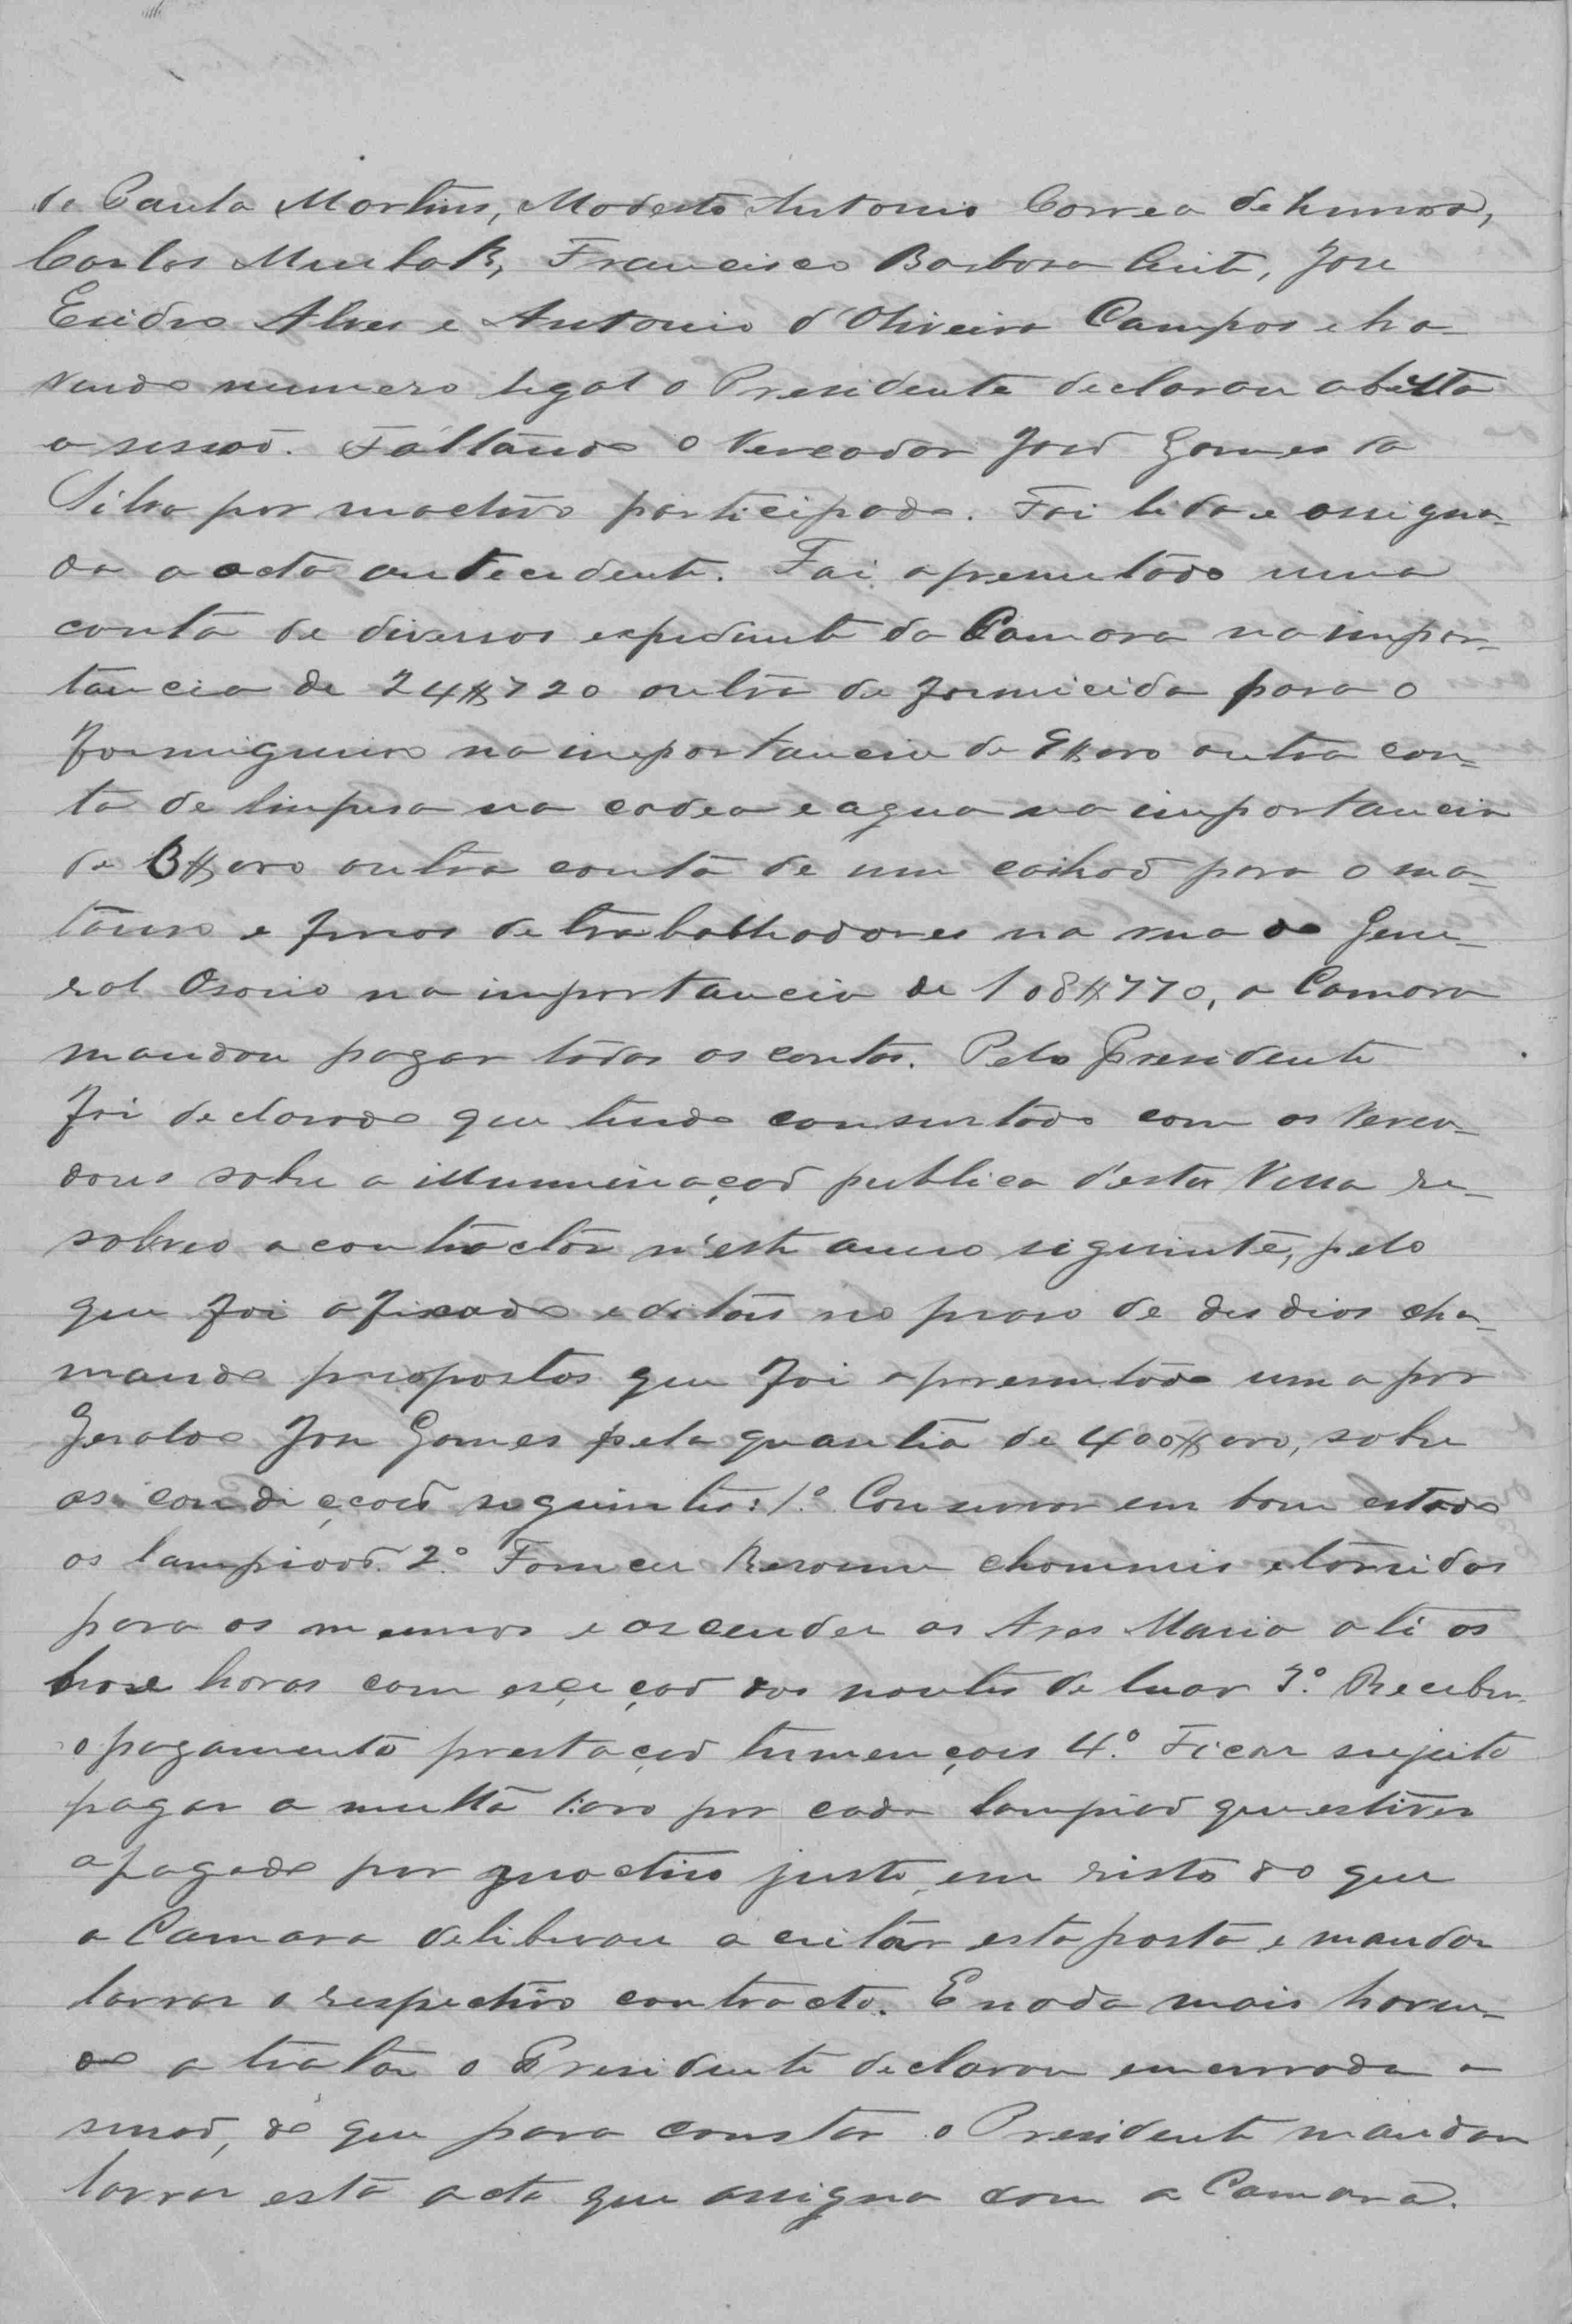 de Paula Martins, Modesto Antonio Correa de Lemos,
Carlos Mentak, Francisco Barbosa Leite, Jose
Esidro Alves e Antonio d'Oliveira Campos e ha-
vendo numero legal o Presidente declarou abêrta
a sessaõ. Faltando o Vereador José Gomes da
Silva por mactivo participado. Foi lida e assigna-
da a acta antecedente. Foi apresentado uma
conta de diversos expediente da Camara na impor-
tancia de 24$720 outra de formicida para o
formigueiro na importancia de 9$000 outra con-
ta de limpesa na cadea e agua na importancia
de 13$000 outra conta de um caixaõ para o ma-
touro e juros de trabalhadores na rua do Gene-
ral Osorio na importancia de 108$770, a Camara
mandou pagar todas as contas. Pelo Presidente
foi declarado que tendo consurtado com os Verea-
dores sobre a illumminaçaõ publica d'esta Villa re-
solveo a contractar n'este anno siguinte, pelo
que foi afixado editais no praso de des dias cha-
mando propostas que foi apresentado uma por
Geraldo Jose Gomes pela quantia de 400$000, sobre
as condiccoes seguintes: 1.º Conservar em bom estado
os lampioõs. 2.º Fornecer Kerosene chamineis e torcidas
para os mesmos e ascender as Aves Maria até as
horas com esceiçaõ das noutes de luar 3.º Receber
o pagamento prestaçaõ trimençais 4.º Ficar sujeito
pagar a multa 1:000 por cada lampiaõ que estiver
apagado por mactivo justo, em vista do que
a Camara deliberou aceitar esta posta e mandar
lavrar o respectivo contracto. E nada mais haven-
do a tratar o Presidente declarou emcerrada a
sessaõ, do que para constar o Presidente mandou
lavrar esta acta que assigna com a Camara.